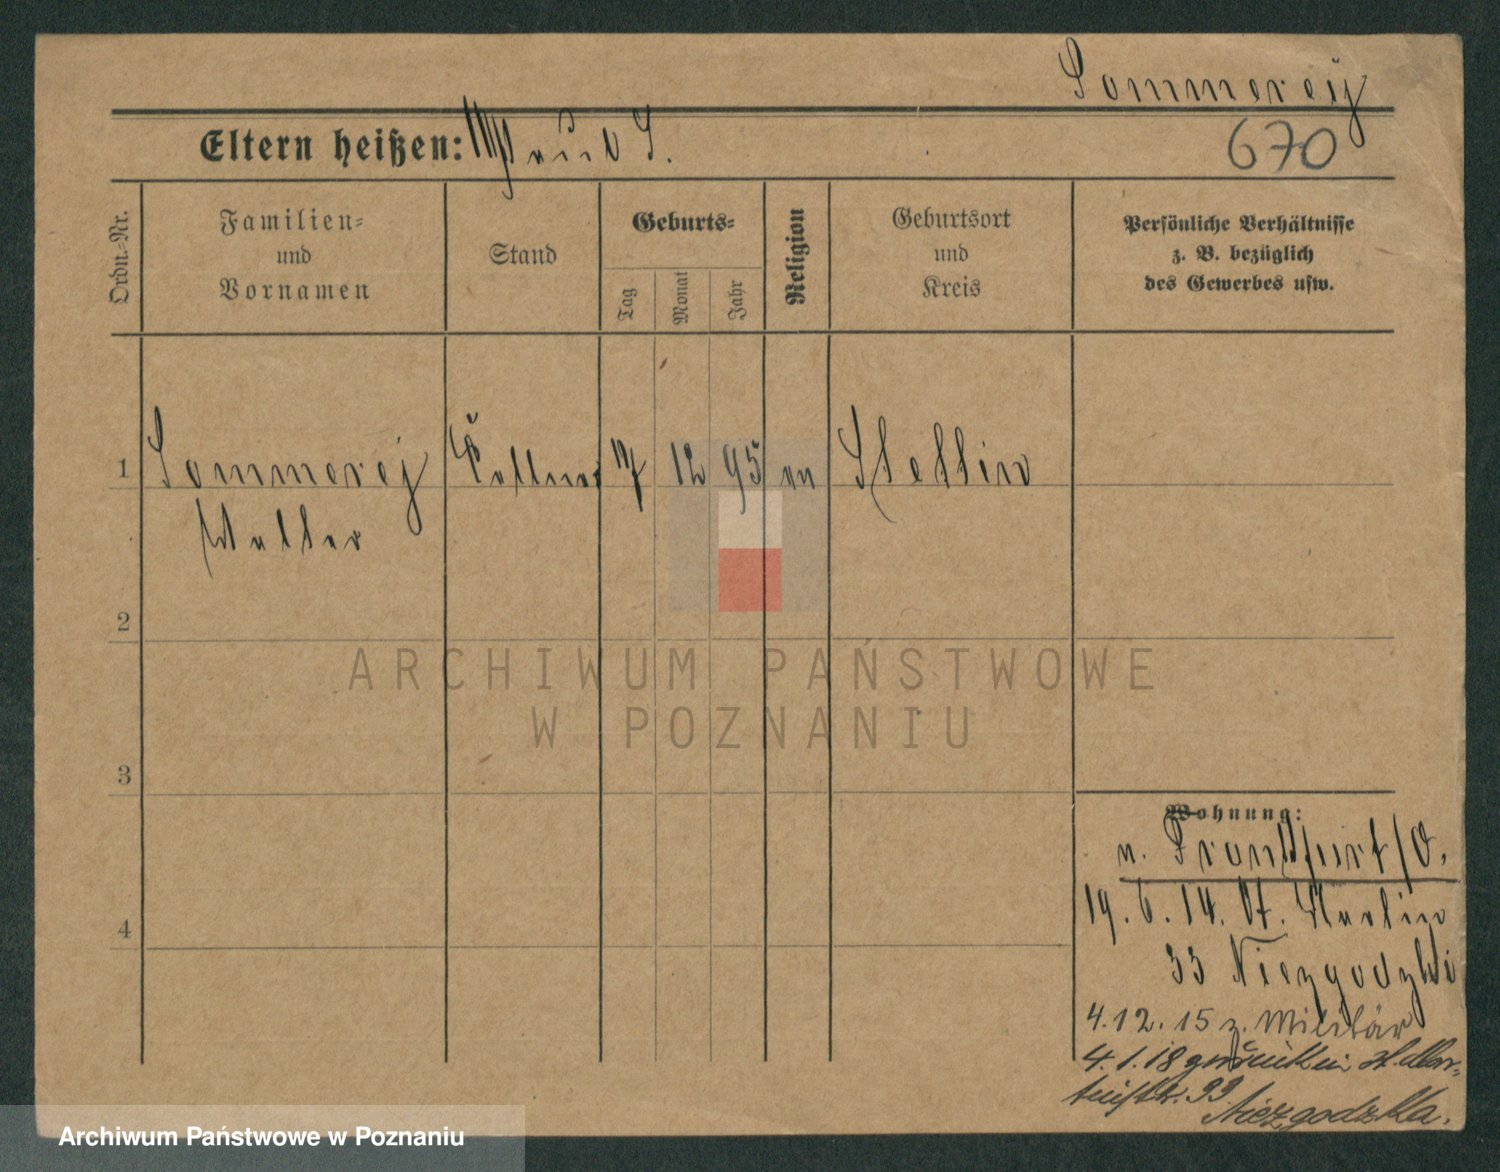 Sommerey
Eltern heißen: und J.
670
Ordn.-Nr.
Familien-
und
Vornamen
Stand
Geburts-
Tag
Monat
Jahr
Religion
Geburtsort
und
Kreis
Persönliche Verhältnisse
z. B. bezüglich
des Gewerbes usw.
1 Sommerey 17 12 95 Stettin
Walter
2
3
4
Wohnung:
n. Frankfurt/O.
19.6.14. St. Martin
33 Niezgodzki
4.12.15 z. Militär
4.1.18 zurück in St. Mar-
tinstr. 33
Niezgodzka.
ARCHIWUM PAŃSTWOWE
W POZNANIU
Archiwum Państwowe w Poznaniu